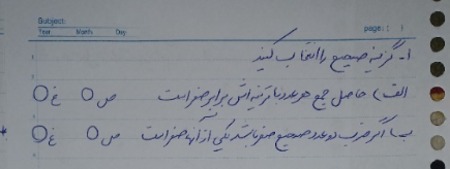 Subject:
Year. Month. Day. page: ( )
۱- گزینه صحیح را انتخاب کنید
الف) حاصل جمع هر عدد با قرینه اش برابر صفر است ص ○ غ ○
ب) اگر ضرب دو عدد صحیح صفر باشد یکی از آنها صفر است ص ○ غ ○